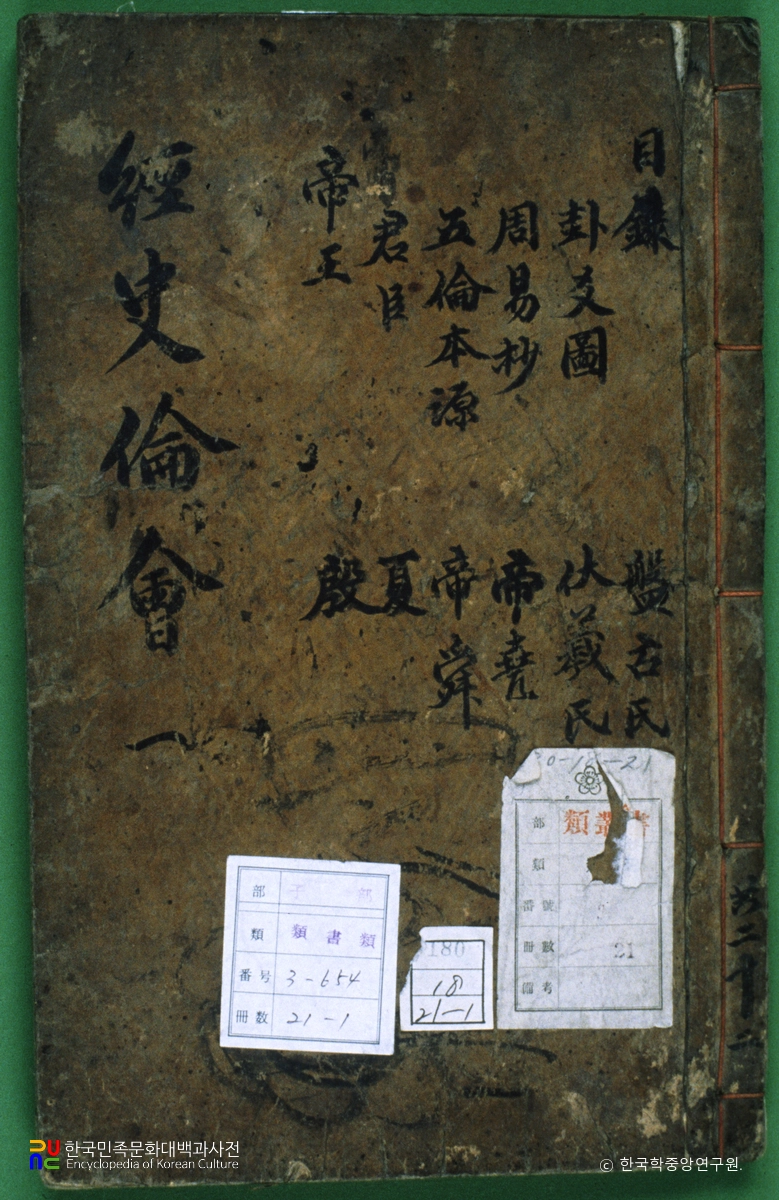 目錄
卦爻圖
周易抄
五倫本源
君臣
帝王
盤古氏
伏羲氏
帝堯
帝舜
夏
殷
經史倫會 一
共二十二
20-18-21
部 類叢書
類
番號
冊數 21
備考
部 子 部
類 類書類
番号 3-654
冊数 21-1
180
18
21-1
한국민족문화대백과사전
Encyclopedia of Korean Culture
© 한국학중앙연구원.